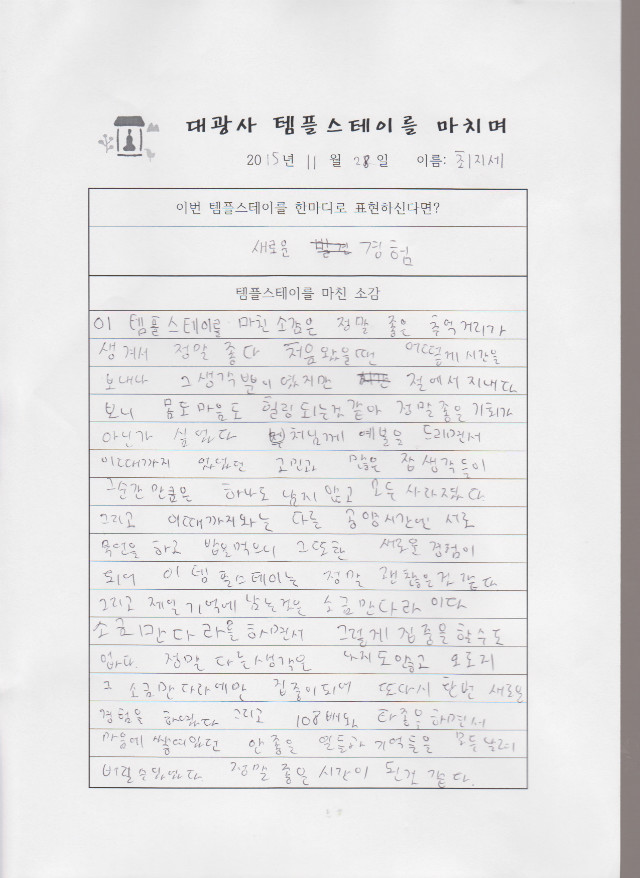 대광사 템플스테이를 마치며
2015년 11 월 28 일 이름: 최지세
이번 템플스테이를 한마디로 표현하신다면?
새로운 발견 경험
템플스테이를 마친 소감
이 템플스테이를 마친소감은 정말 좋은 추억거리가
생겨서 정말 좋다 처음왔을땐 어떻게 시간을
보내나 그생각뿐이였지만 절에서 지내다
보니 몸도마음도 힐링되는것같아 정말좋은기회가
아닌가 싶었다 부처님께 예불을 드리면서
이때까지 있었던 고민과 많은 잡생각들이
그순간만큼은 하나도 남지 않고 모두 사라졌다
그리고 이때까지와는 다른 공양시간엔 서로
묵언을 하고 밥을먹으니 그또한 새로운경험이
되어 이 템플스테이는 정말 괜찮을것 같다
그리고 제일 기억에 남는것은 소금만다라 이다
소금만다라를 하면서 그렇게 집중을 할수도
없다. 정말 다른생각은 나지도않고 오로지
그 소금만다라에만 집중이되어 또다시 한번 새로운
경험을 하였다 그리고 108배와 타종을 하면서
마음에 쌓여있던 안좋은 일들과 기억들을 모두날려
버릴수있었다 정말 좋은 시간이 된것 같다.